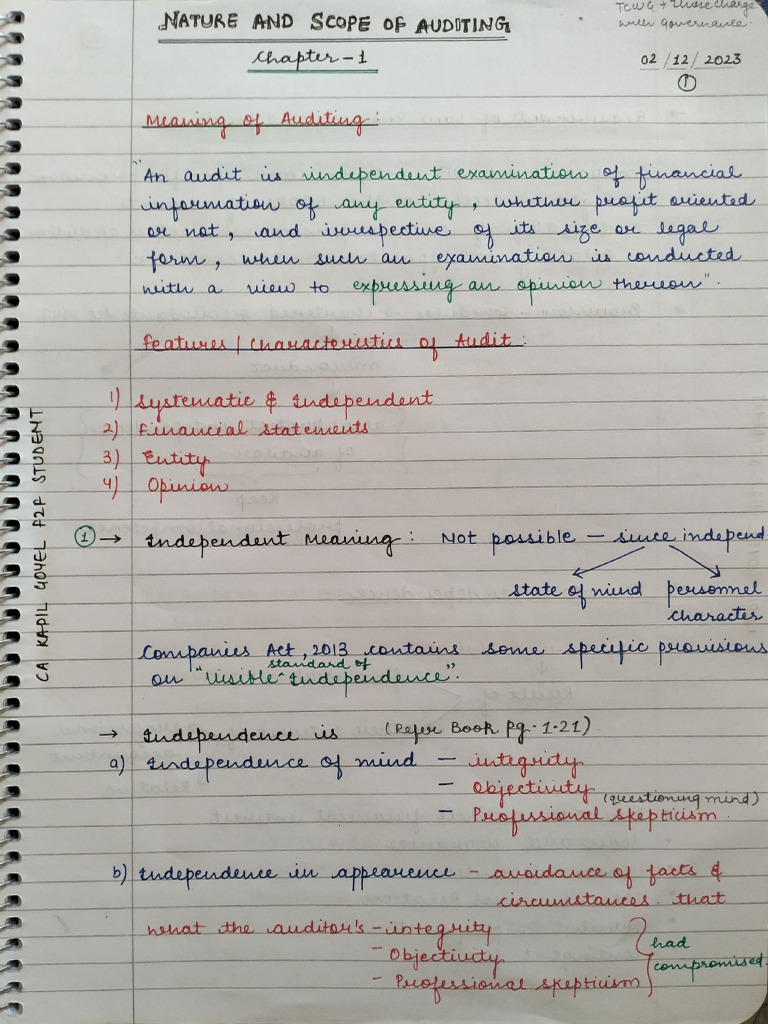 TCWG → Those charge
with Governance.
NATURE AND SCOPE OF AUDITING
Chapter-1
02/12/2023
1
Meaning of Auditing:
"An audit is independent examination of financial
information of any entity, whether profit oriented
or not, and irrespective of its size or legal
form, when such an examination is conducted
with a view to expressing an opinion thereon".
Features/Characteristics of Audit:
1) Systematic & Independent
2) Financial statements
3) Entity
4) Opinion
1 → Independent Meaning: Not possible - since independ
state of mind personnel
character
Companies Act, 2013 contains some specific provisions
standard of
on "Visible Independence".
→ Independence is (Refer Book pg. 1.21)
a) Independence of mind - integrity
- Objectivity
(questioning mind)
- Professional skepticism.
b) Independence in appearence - avoidance of facts &
circumstances. that
what the auditor's - integrity
- Objectivity
- Professional skepticism
had
compromised.
CA KAPIL GOYEL F2F STUDENT